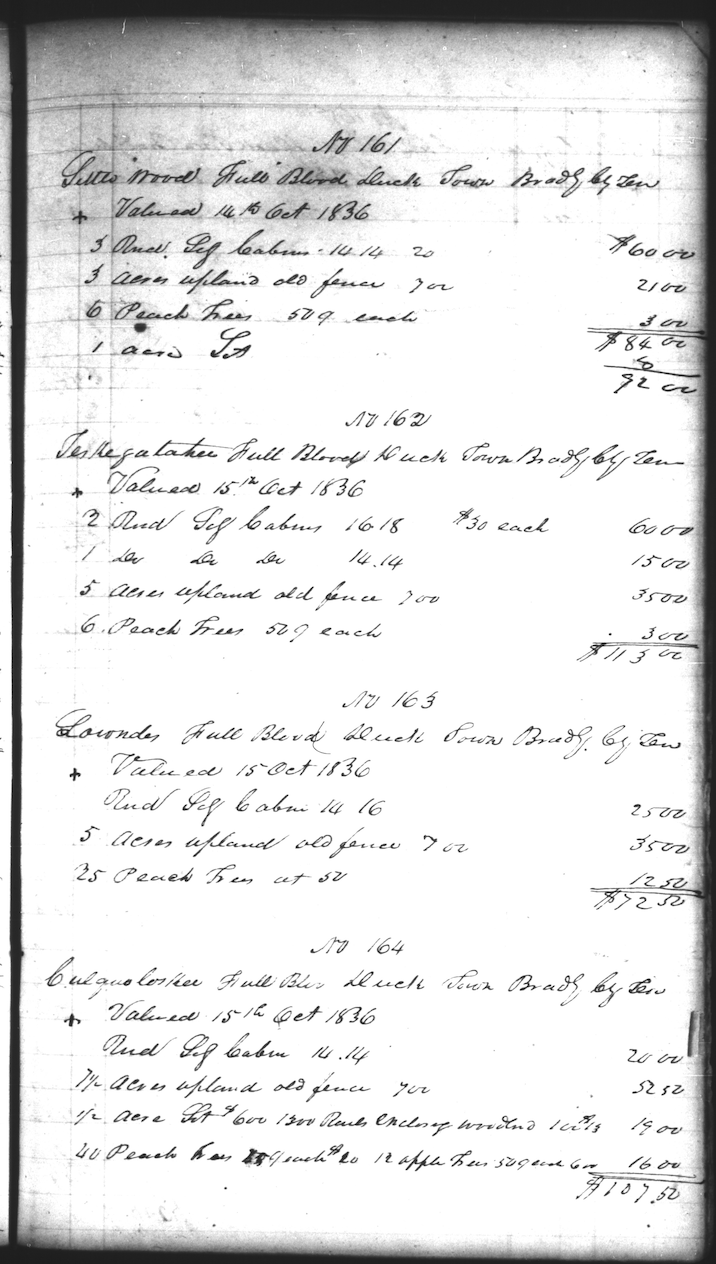 No 161
Little Wood Full Blood Duck Town Bradly Cy Ten
+ Valued 14th Oct 1836
3 Rnd. Log Cabins 14 14 20 $60 00
3 acres upland old fence 7 00 21 00
6 Peach Trees 50 each 3 00
$84 00
1 acre Lot 8
92 00
No 162
Teskegatahee Full Blood Duck Town Bradly Cy Ten
+ Valued 15th Oct 1836
2 Rnd Log Cabins 16 18 $30 each 60 00
1 Do Do Do 14.14 15 00
5 acres upland old fence 7 00 35 00
6 Peach Trees 50 each 3 00
$113 00
No 163
Lowndes Full Blood Duck Town Bradly. Cy Ten
+ Valued 15 Oct 1836
Rnd Log Cabin 14 16 25 00
5 acres upland old fence 7 00 35 00
25 Peach Trees at 50 12 50
$72 50
No 164
Culquoloskee Full Blo Duck Town Bradly Cy Ten
+ Valued 15th Oct 1836
Rnd Log Cabin 14.14 20 00
7 1/2 acres upland old fence 7 00 52 50
1/2 acre Lot $600 1300 Rails enclosg woodlnd 19 00
40 Peach Trees each $20 12 apple Trees 50 each 6 00 16 00
$107 50